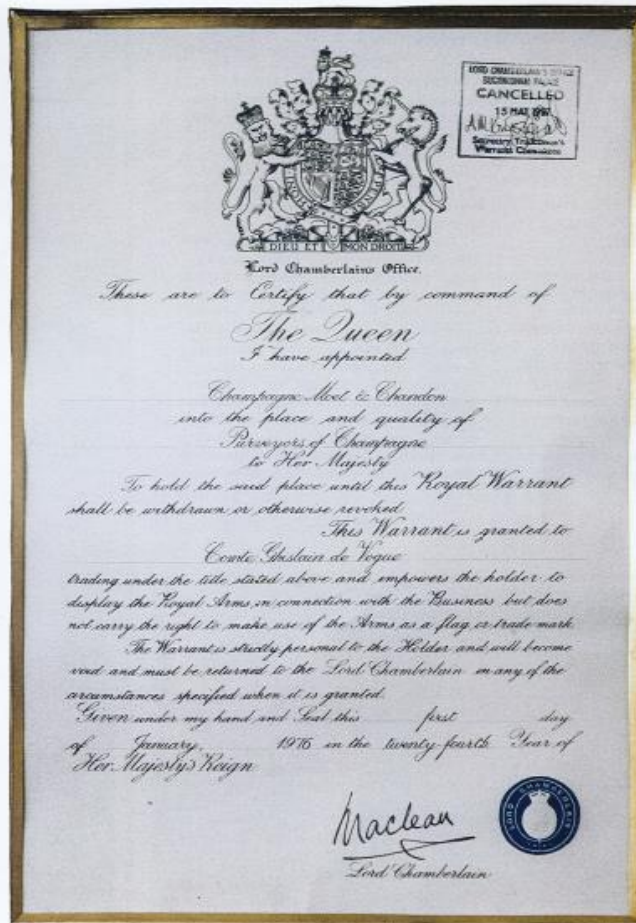 LORD CHAMBERLAIN'S OFFICE
BUCKINGHAM PALACE
CANCELLED
15 MAY
Secretary Tradesmen's
Warrants Committee
DIEU ET MON DROIT
Lord Chamberlains Office.
These are to Certify that by command of
The Queen
I have appointed
Champagne Moet & Chandon
into the place and quality of
Purveyors of Champagne
to Her Majesty
To hold the said place until this Royal Warrant
shall be withdrawn or otherwise revoked
This Warrant is granted to
Comte Ghislain de Vogue
trading under the title stated above and empowers the holder to
display the Royal Arms in connection with the Business but does
not carry the right to make use of the Arms as a flag or trade mark
The Warrant is strictly personal to the Holder and will become
void and must be returned to the Lord Chamberlain in any of the
circumstances specified when it is granted.
Given under my hand and Seal this first day
of January, 1976 in the twenty-fourth Year of
Her Majesty's Reign
Maclean
Lord Chamberlain
LORD CHAMBERLAIN